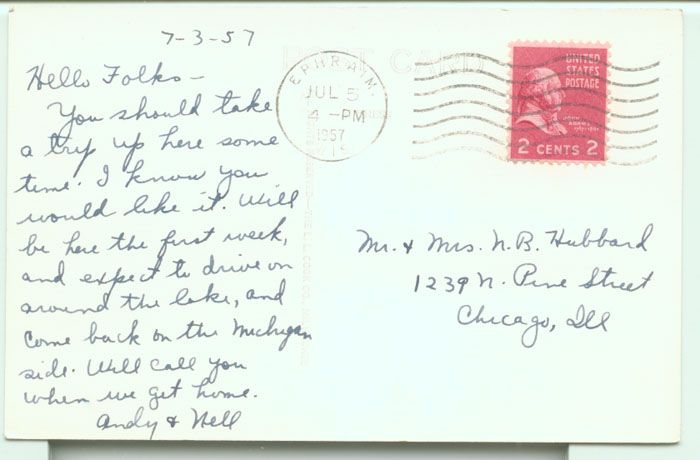 7-3-57
Hello Folks-
You should take
a trip up here some
time. I know you
would like it. Will
be here the first week,
and expect to drive on
around the lake, and
come back on the Michigan
side. Will call you
when we get home.
Andy & Nell
POST CARD
EPHRAIM,
JUL 5
4 -PM
1957
WIS.
UNITED
STATES
POSTAGE
JOHN
ADAMS
2 CENTS 2
Mr. & Mrs. N.B. Hubbard
1239 N. Pine Street
Chicago, Ill